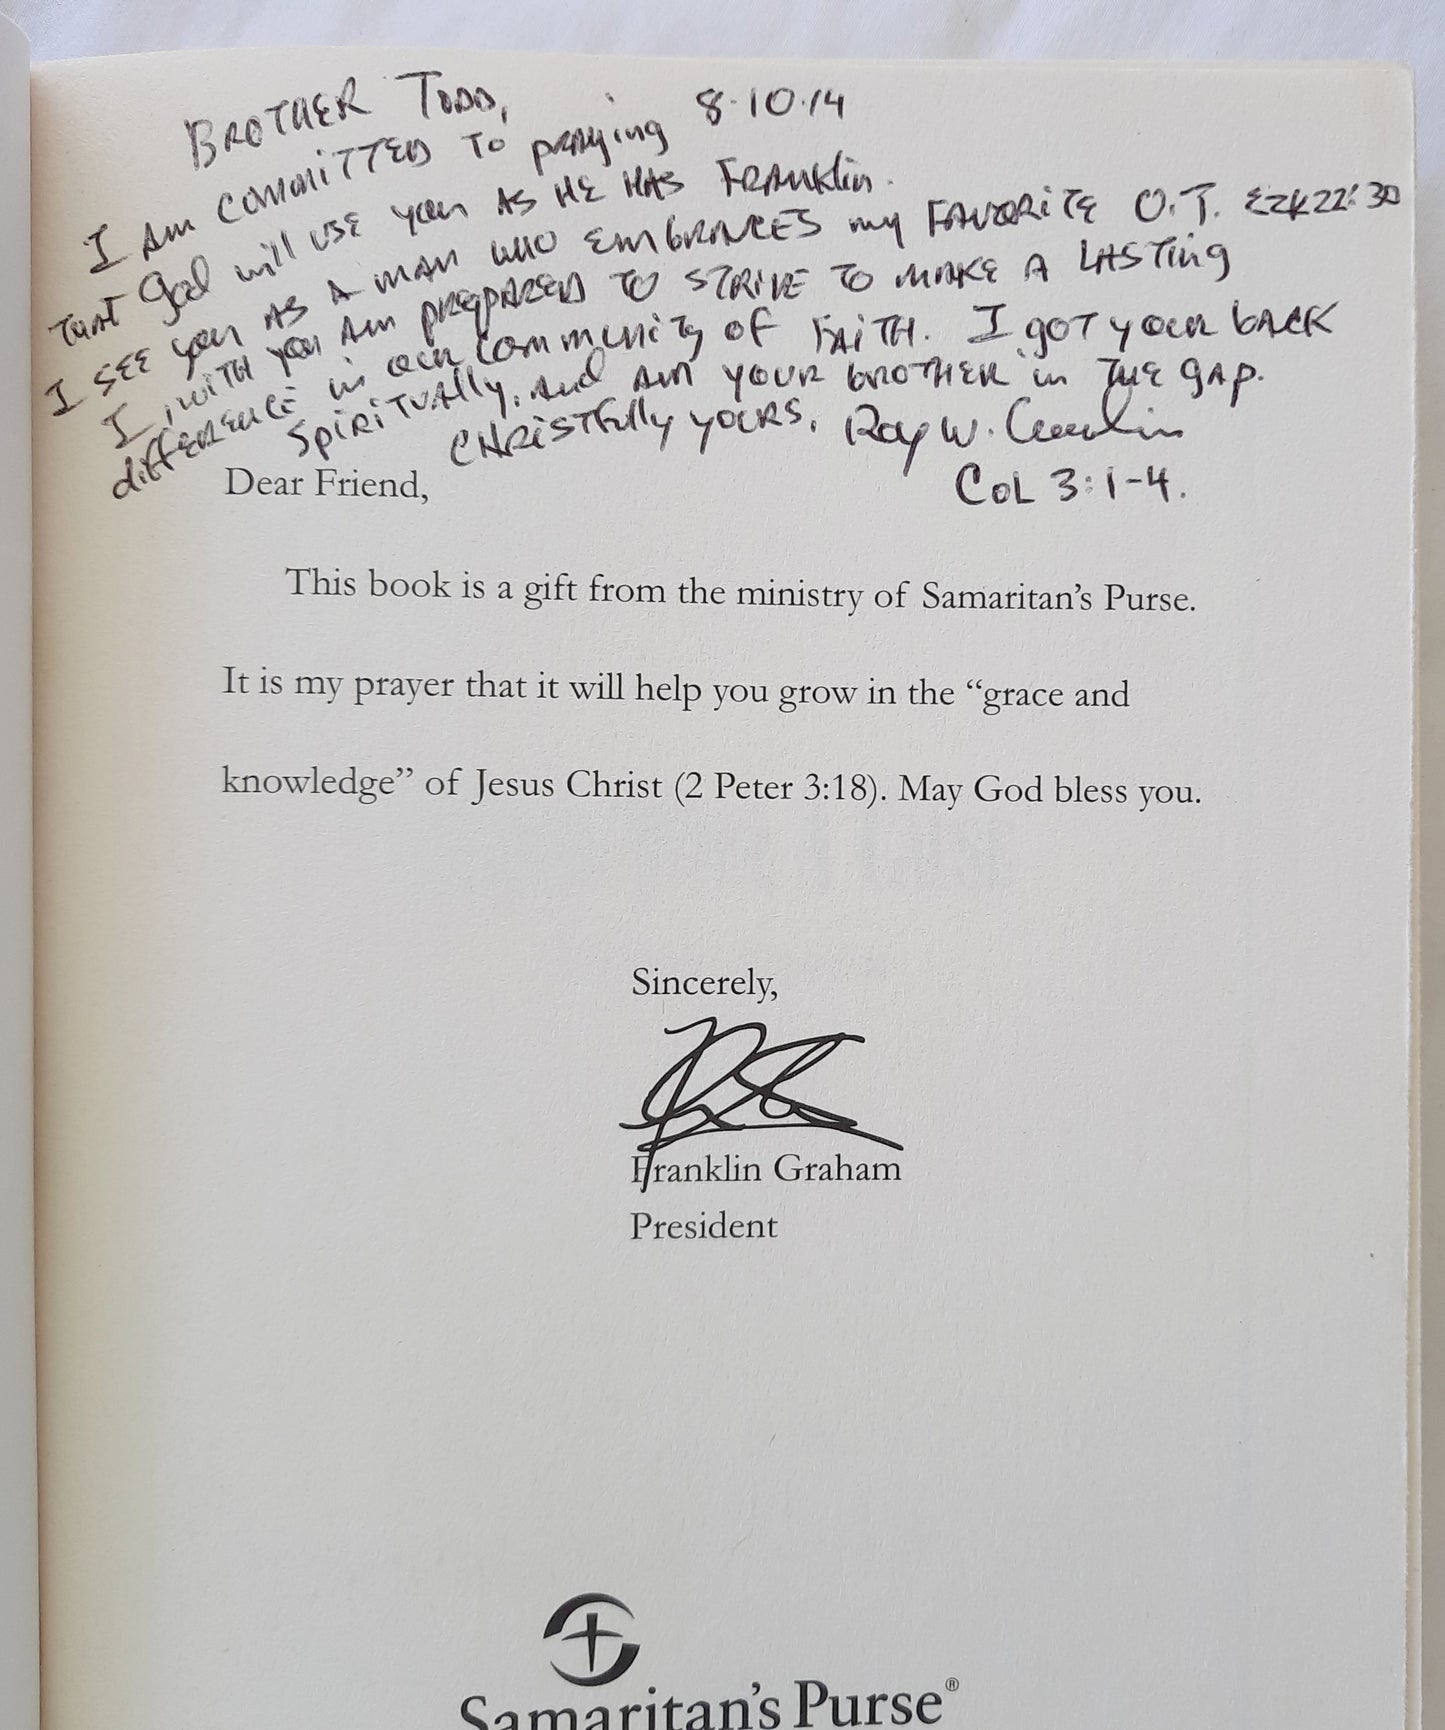 BROTHER TODD,
8·10·14
I AM COMMITTED TO praying
THAT God will USE you AS HE HAS FRANKlin.
I SEE you AS A MAN WHO EMBRACES my FAVORITE O.T. EZK 22:30
I, WITH you AM PREPARED TO STRIVE TO MAKE A LASTing
diffERENCE in OUR COMMUNITY OF FAITH. I GOT YOUR BACK
SpiRiTUAlly, And AM YOUR BROTHER in THE GAP.
CHRISTfully YOURS, Roy W.
COL 3:1-4.
Dear Friend,
This book is a gift from the ministry of Samaritan's Purse.
It is my prayer that it will help you grow in the “grace and
knowledge” of Jesus Christ (2 Peter 3:18). May God bless you.
Sincerely,
Franklin Graham
President
Samaritan's Purse®